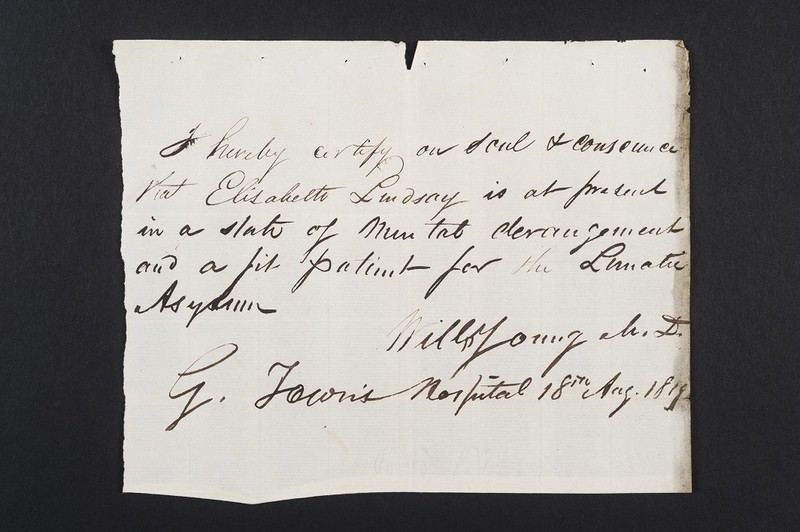 I hereby certify on Soul & conscience
that Elisabeth Lindsay is at present
in a state of Mental derangement
and a fit patient for the Lunatic
Asylum
Willm Young M.D.
G. Town's Hospital 18th Aug. 1819